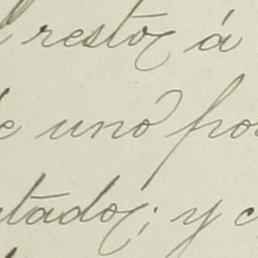 restos á
uno por
tados; y